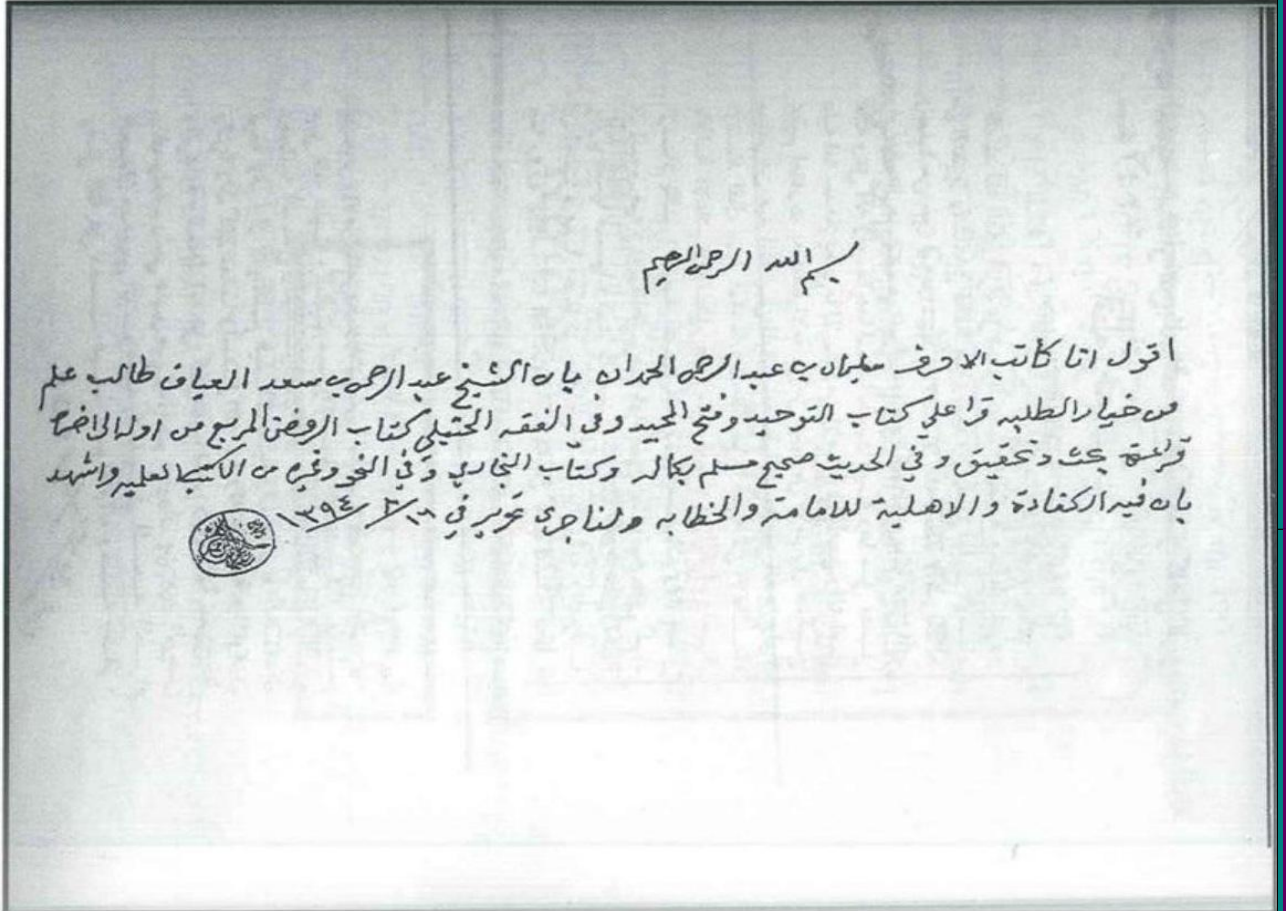 بسم الله الرحمن الرحيم
اقول انا كاتب الاحرف سليمان بن عبد الرحمن الحمدان بان الشيخ عبد الرحمن بن سعد العياف طالب علم
من خيار الطلبه قرا علي كتاب التوحيد وفتح المجيد وفي الفقه الحنبلي كتاب الروض المربع من اوله الى اخره
قراءة بحث وتحقيق وفي الحديث صحيح مسلم بكماله وكتاب البخاري وفي النحو وغيره من الكتب العلميه واشهد
بان فيه الكفاءة والاهلية للامامة والخطابه ولذا جرى تحريره في ١٣٩٤